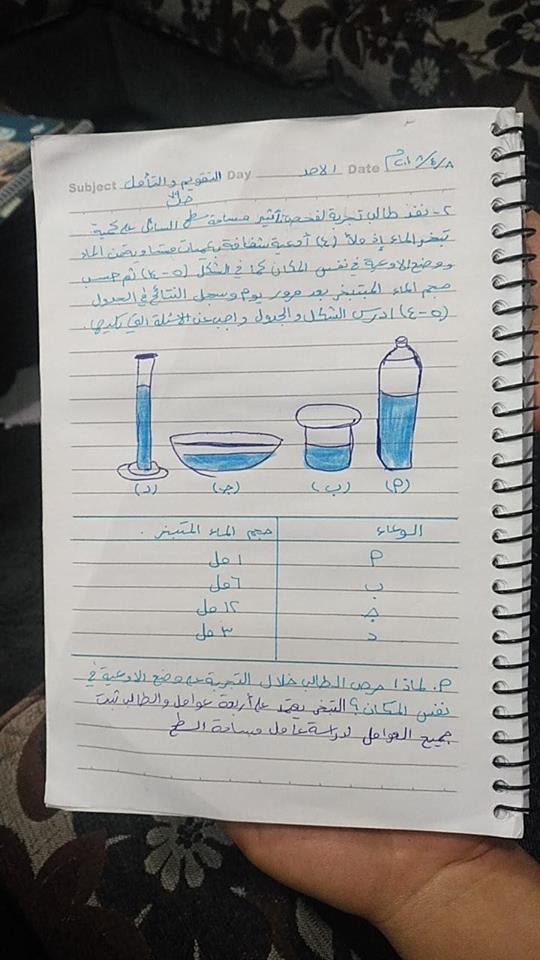 Subject التقويم والتأمل Day الاحد Date ٢٠١٨/٤/٨م
ص
٢- نفذ طالب تجربة لفحص تأثير مساحة سطح السائل على كمية
تبخر الماء إذ ملأ (٤) أوعية شفافة بكميات متساوية من الماء
ووضع الاوعية في نفس المكان كما في الشكل (٥-١٤) ثم حسب
حجم الماء المتبخر بعد مرور يوم وسجل النتائج في الجدول
(٥-٤) ادرس الشكل والجدول واجب عن الاسئلة التي تليها.
(د) (جـ) (ب) (أ)
الوعاء حجم الماء المتبخر.
أ ١ مل
ب ٦ مل
جـ ١٢ مل
د ٣ مل
أ. لماذا حرص الطالب خلال التجربة على وضع الاوعية في
نفس المكان؟ التبخر يعتمد على أربعة عوامل والطالب ثبت
جميع العوامل لدراسة عامل مساحة السطح